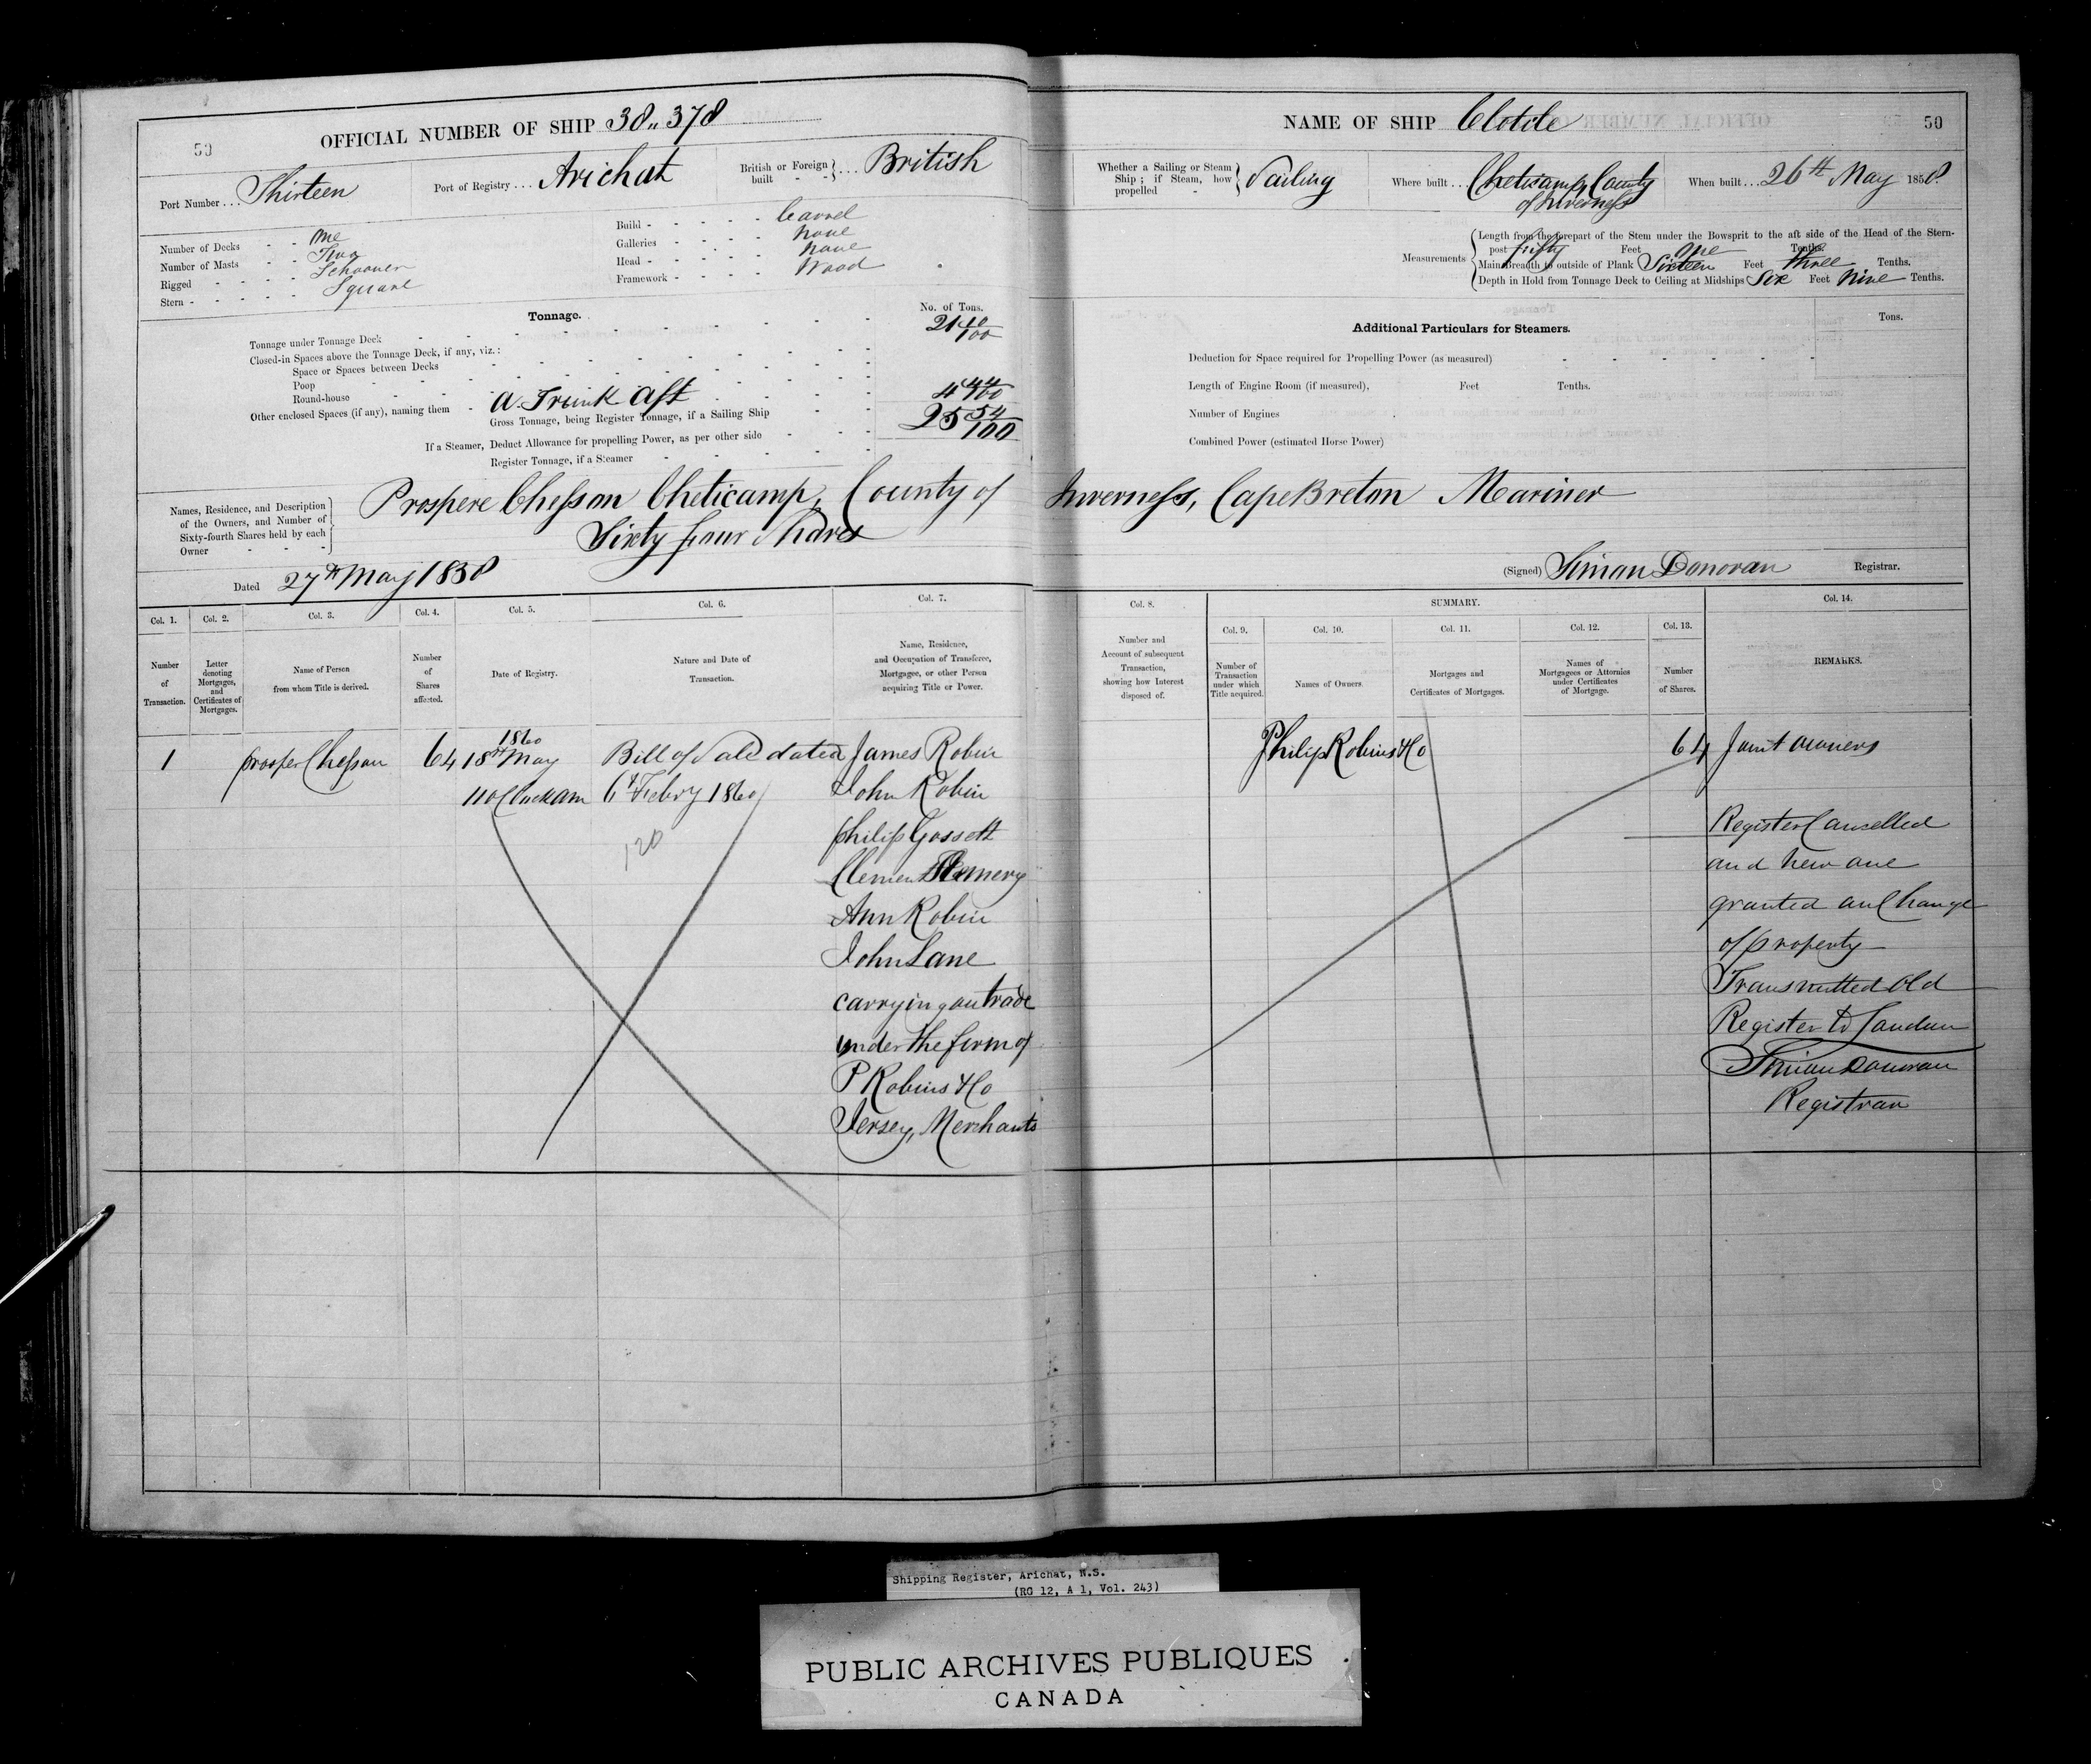 50
OFFICIAL NUMBER OF SHIP 38,,378
Port Number... Thirteen
Port of Registry... Arichat
British or Foreign built - - } .... British
Number of Decks - - One
Number of Masts - - Two
Rigged - - - - - Schooner
Stern - - - - - - Square
Build - - - - - - Carvel
Galleries - - - - - None
Head - - - - - - None
Framework - - - - Wood
Tonnage.
No. of Tons.
Tonnage under Tonnage Deck 21 10/100
Closed-in Spaces above the Tonnage Deck, if any, viz.:
Space or Spaces between Decks
Poop
Round-house
Other enclosed Spaces (if any), naming them - A. Trunk Aft 4 44/100
Gross Tonnage, being Register Tonnage, if a Sailing Ship 25 54/100
If a Steamer, Deduct Allowance for propelling Power, as per other side
Register Tonnage, if a Steamer
NAME OF SHIP Clotile
50
Whether a Sailing or Steam Ship; if Steam, how propelled - } Sailing
Where built... Cheticamp, County
of Inverness
When built... 26th May 1858.
Measurements
Length from the forepart of the Stem under the Bowsprit to the aft side of the Head of the Stern-
post fifty Feet One Tenths.
Main Breadth to outside of Plank Sixteen Feet three Tenths.
Depth in Hold from Tonnage Deck to Ceiling at Midships Six Feet Nine Tenths.
Additional Particulars for Steamers.
Tons.
Deduction for Space required for Propelling Power (as measured)
Length of Engine Room (if measured), Feet Tenths.
Number of Engines
Combined Power (estimated Horse Power)
Names, Residence, and Description
of the Owners, and Number of
Sixty-fourth Shares held by each
Owner
Prospere Chesson Cheticamp, County of Inverness, Cape Breton Mariner
Sixty four Shares
Dated 27th May 1858
(Signed) Simon Donovan Registrar.
Col. 1.
Number of Transaction.
Col. 2.
Letter denoting Mortgages, and Certificates of Mortgages.
Col. 3.
Name of Person from whom Title is derived.
Col. 4.
Number of Shares affected.
Col. 5.
Date of Registry.
Col. 6.
Nature and Date of Transaction.
Col. 7.
Name, Residence, and Occupation of Transferee, Mortgagee, or other Person acquiring Title or Power.
Col. 8.
Number and Account of subsequent Transaction, showing how Interest disposed of.
SUMMARY.
Col. 9.
Number of Transaction under which Title acquired.
Col. 10.
Names of Owners.
Col. 11.
Mortgages and Certificates of Mortgages.
Col. 12.
Names of Mortgagees or Attornies under Certificates of Mortgage.
Col. 13.
Number of Shares.
Col. 14.
REMARKS.
1
prosper Chesson
64
1860
18th May
11 oClock am
Bill of Sale dated
6th Febry 1860
120
James Robin
John Robin
philip Gossett
Clement Hemery
Ann Robin
John Lane
carrying on trade
under the firm of
P Robins & Co
Jersey, Merchants
Philip Robins & Co
64
Joint owners
Register Cancelled
and new one
granted on Change
of property
Transmitted old
Register to London
Simon Donovan
Registrar
Shipping Register, Arichat, N.S.
(RG 12, A 1, Vol. 243)
PUBLIC ARCHIVES PUBLIQUES
CANADA